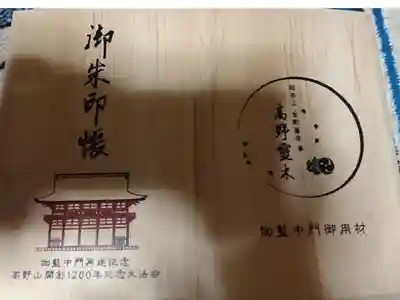 御朱印帳
伽藍中門再建記念
高野山開創1200年記念大法会
高野霊木
伽藍中門御用材